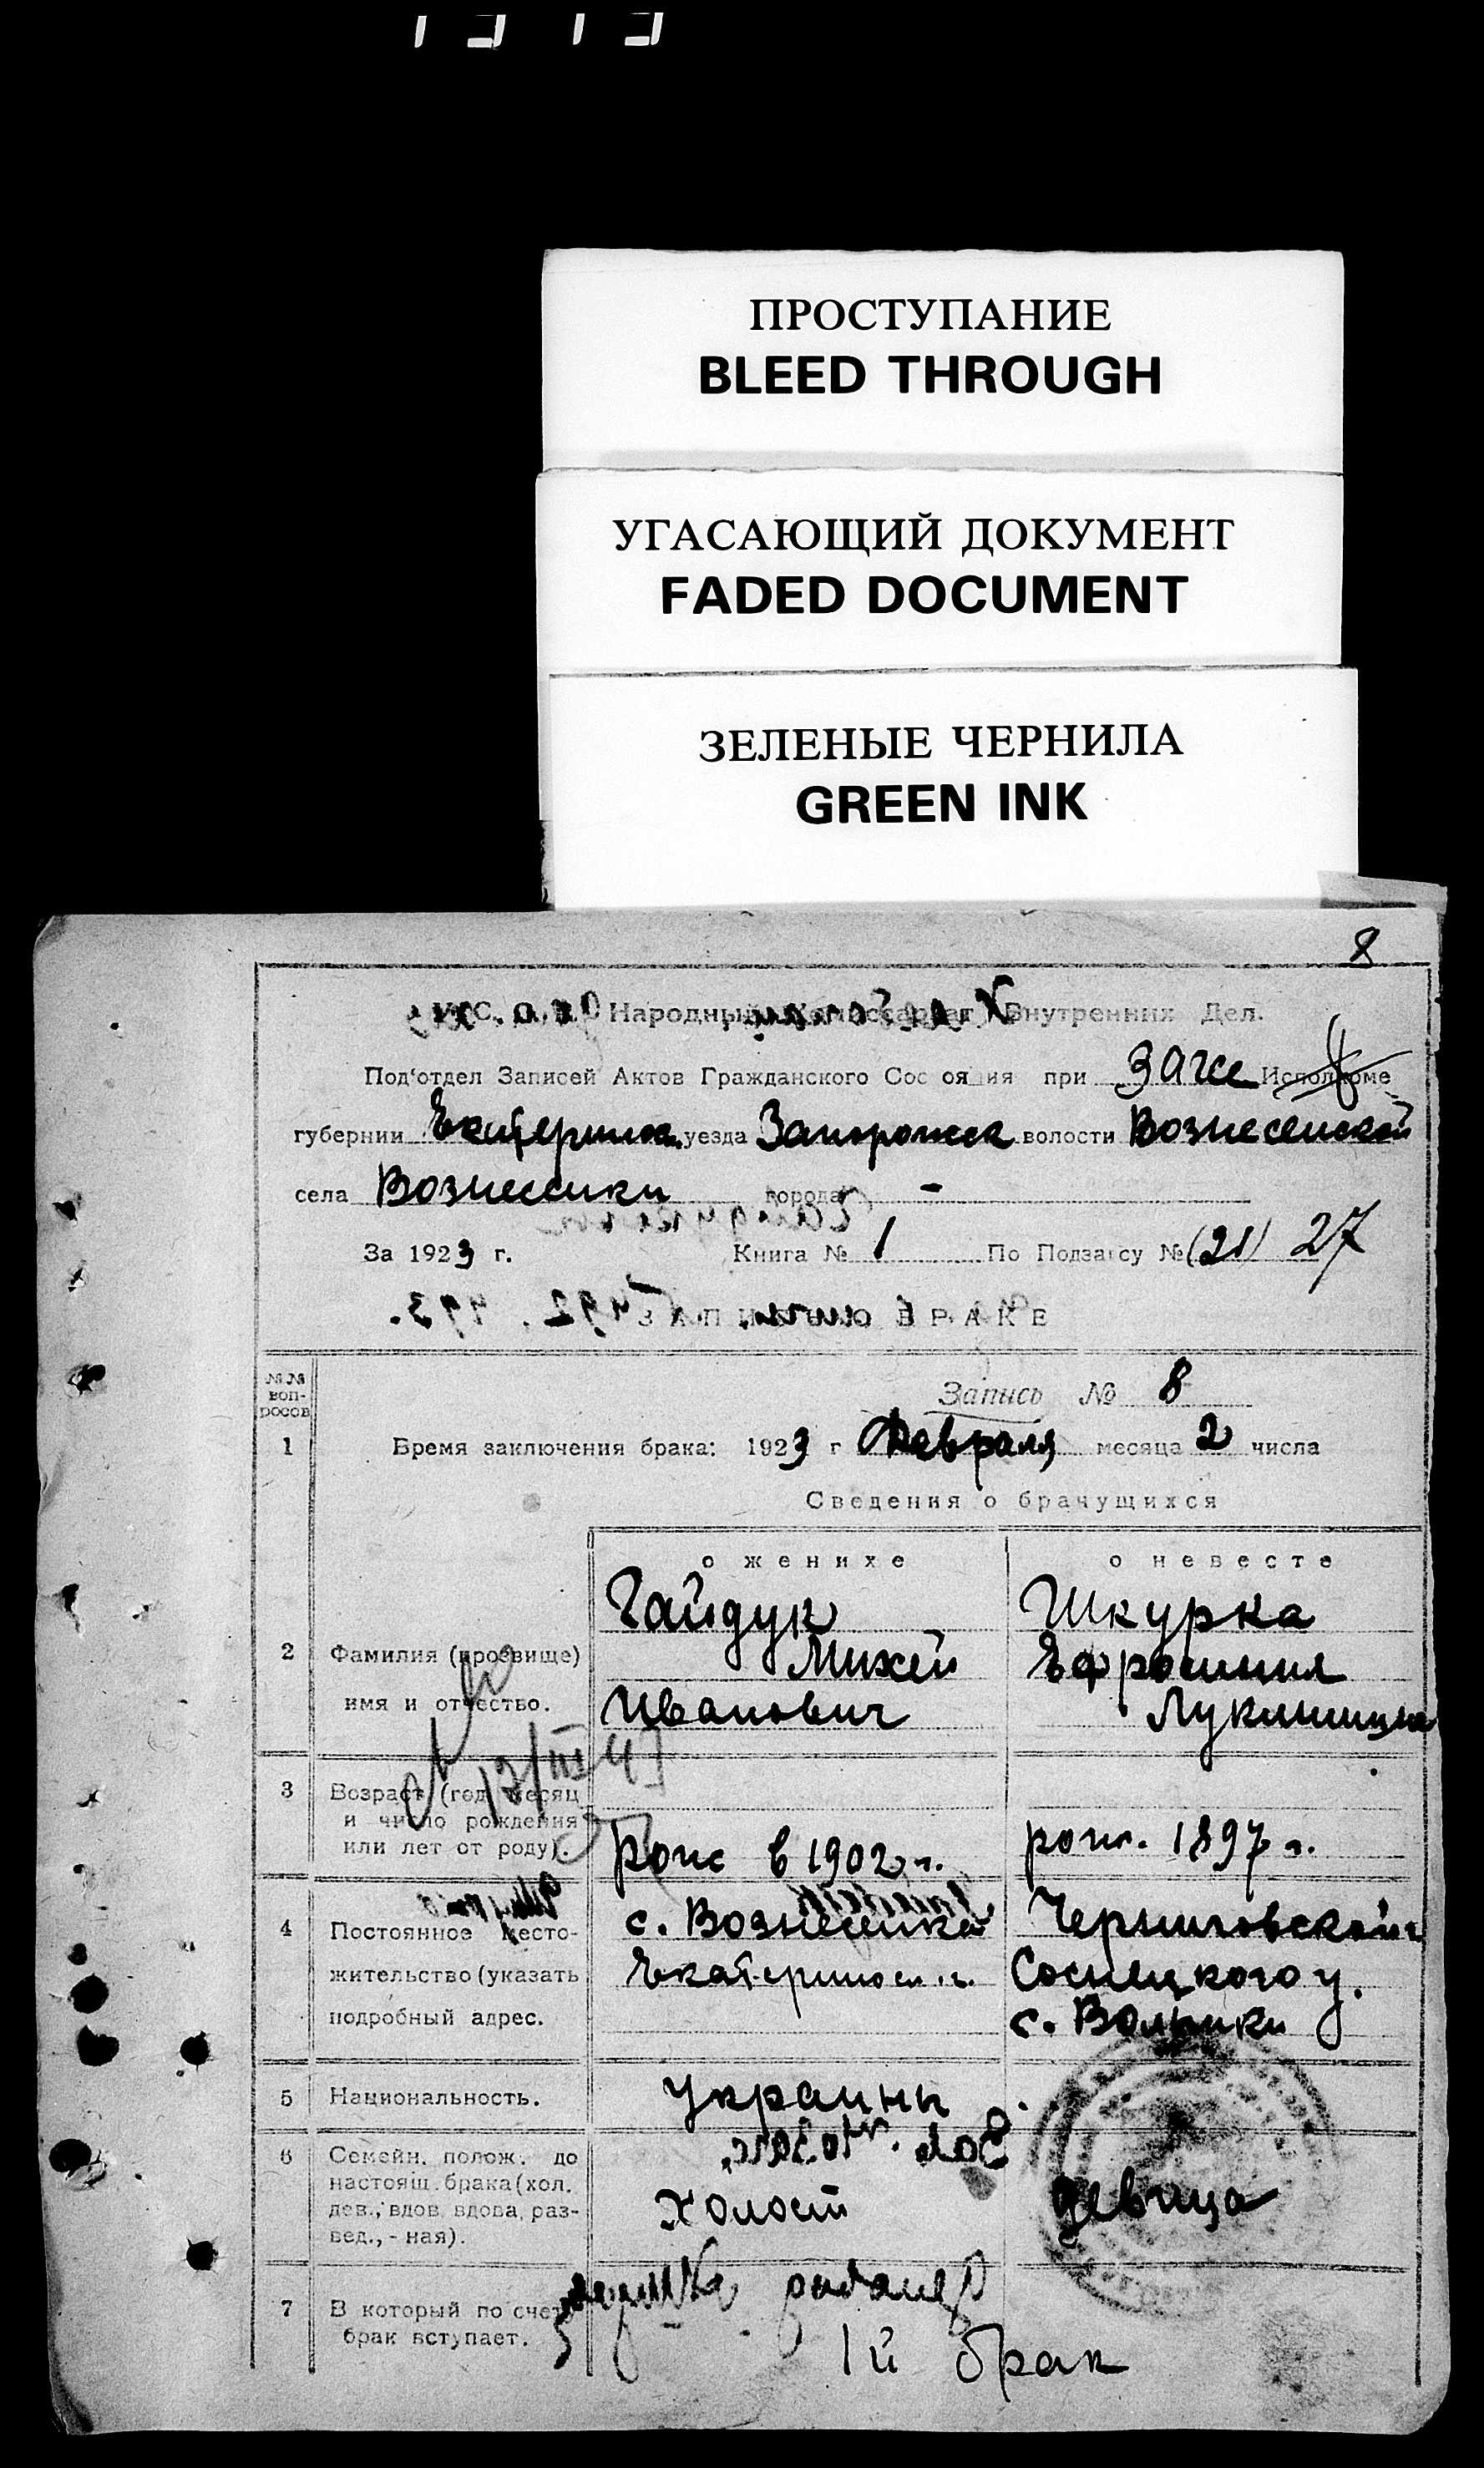 ПРОСТУПАНИЕ
BLEED THROUGH
УГАСАЮЩИЙ ДОКУМЕНТ
FADED DOCUMENT
ЗЕЛЕНЫЕ ЧЕРНИЛА
GREEN INK
8
Народный Комиссариат Внутренних Дел.
Под'отдел Записей Актов Гражданского Сос оя ия при Загсе Исполкоме
губернии Екатеринос. уезда Запорожск волости Вознесенской
села Вознесенки города -
За 1923 г. Книга № 1 По Подзагсу № (21) 27
ЗАПИСЬ О БРАКЕ
№№ воп-
росов
Запись № 8
1 Время заключения брака: 1923 г Февраля месяца 2 числа
Сведения о брачущихся
о женихе о невесте
Гайдук Шкурка
2 Фамилия (прозвище) Михей Ефросиния
имя и отчество. Иванович Лукинишна
12/III 47
3 Возраст (год месяц
и число рождения
или лет от роду). рож в 1902 г. рож. 1897 г.
4 Постоянное место- с. Вознесенка Черниговской г
жительство (указать Екатериносл. г. Сосницкого у.
подробный адрес. с. Волынки
5 Национальность. Украинц
6 Семейн. полож. до
настоящ. брака (хол. Холост девица
дев., вдов. вдова, раз-
вед., - ная).
7 В который по счету
брак вступает. 1й брак